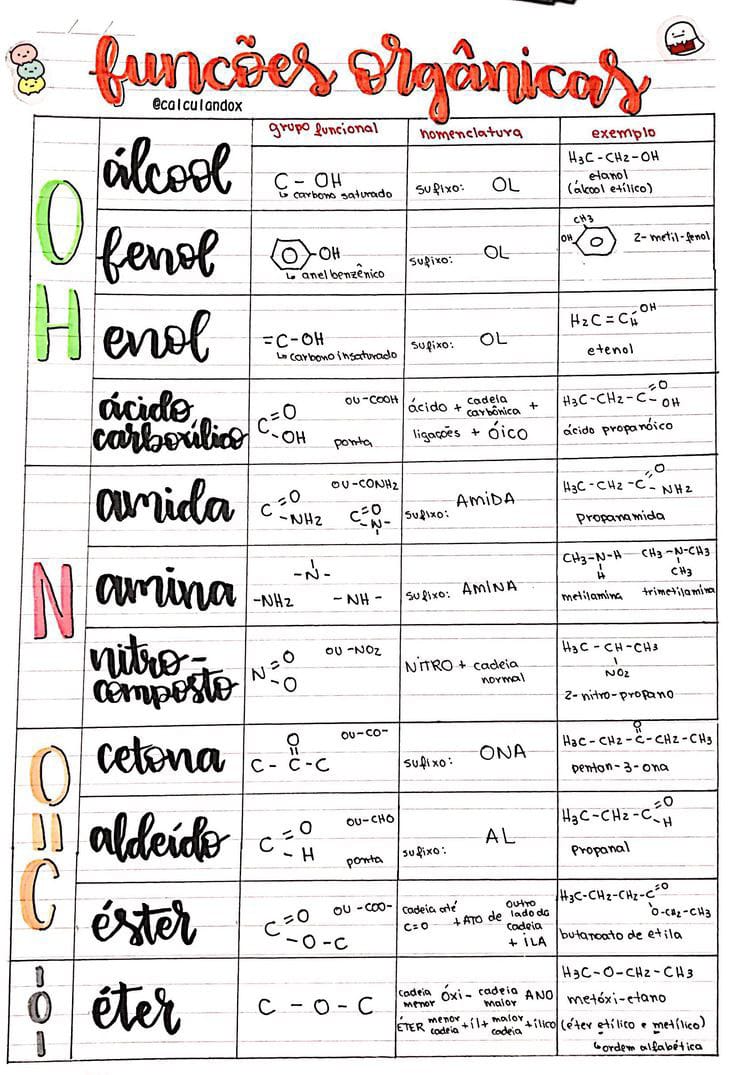 funcões orgânicas
@calculandox
grupo funcional nomenclatura exemplo
OH
álcool
C - OH
↳ carbono saturado
sufixo: OL
H3C - CH2 - OH
etanol
(álcool etílico)
fenol
-OH
↳ anel benzênico
sufixo: OL
CH3
OH
2- metil-fenol
enol
=C-OH
↳ carbono insaturado
sufixo: OL
H2C = C - OH
H
etenol
ácido
carboxílico
ou-COOH
C=O
-OH
ponta
ácido + cadeia carbônica +
ligações + ÓICO
H3C-CH2-C=O
- OH
ácido propanóico
N
amida
ou-CONH2
C=O
-NH2
C=O
-N-
sufixo: AMIDA
H3C-CH2-C=O
- NH2
propanamida
amina
-N-
-NH2 -NH-
sufixo: AMINA
CH3-N-H
H
metilamina
CH3-N-CH3
CH3
trimetilamina
nitro-
composto
ou-NO2
N=O
-O
NITRO + cadeia
normal
H3C - CH-CH3
NO2
2-nitro-propano
O=C
cetona
ou-CO-
O
C - C - C
sufixo: ONA
O
H3C-CH2-C-CH2-CH3
pentan-3-ona
aldeído
ou-CHO
C=O
- H
ponta
sufixo: AL
H3C-CH2-C=O
-H
propanal
éster
ou-COO-
C=O
-O-C
cadeia até
C=O
+ ATO de
outro
lado da
cadeia
+ ILA
H3C-CH2-CH2-C=O
O-CH2-CH3
butanoato de etila
-O-
éter
C - O - C
cadeia menor ÓXI- cadeia maior ANO
ÉTER menor cadeia +il+ maior cadeia +ílico
H3C-O-CH2-CH3
metóxi-etano
(éter etílico e metílico)
↳ordem alfabética